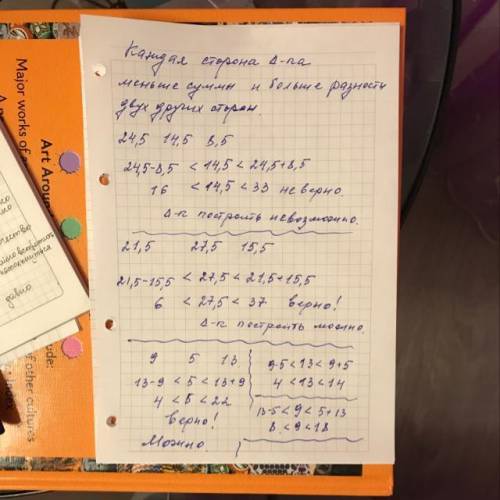 Каждая сторона Δ-ка
меньше суммы и больше разности
двух других сторон.
24,5 14,5 8,5
24,5-8,5 < 14,5 < 24,5+8,5
16 < 14,5 < 33 неверно.
Δ-к построить невозможно.
21,5 27,5 15,5
21,5-15,5 < 27,5 < 21,5+15,5
6 < 27,5 < 37 верно!
Δ-к построить можно.
9 5 13
13-9 < 5 < 13+9
4 < 5 < 22
верно!
Можно.
9-5 < 13 < 9+5
4 < 13 < 14
13-5 < 9 < 5+13
8 < 9 < 18
Major works of
Art Around
of other cultures
давно